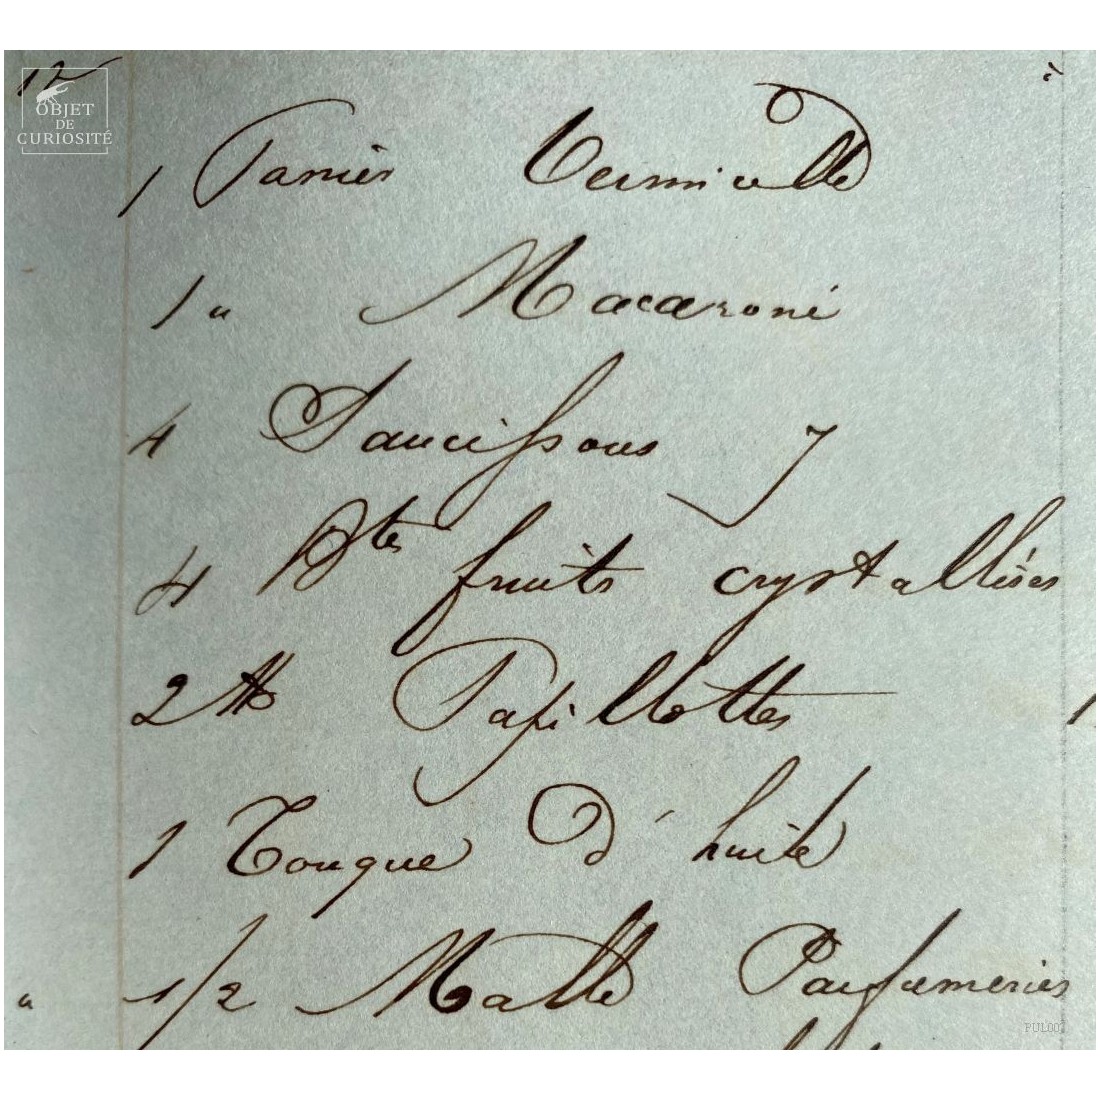 12
OBJET
DE
CURIOSITÉ
1 Panier Vermicelle
1 " Macaroni
4 Saucissons 7
4 Btes fruits crystallisés
2 ℔ Papillottes
1 Touque d'huile
" 1/2 Malle Parfumeries
PUL00